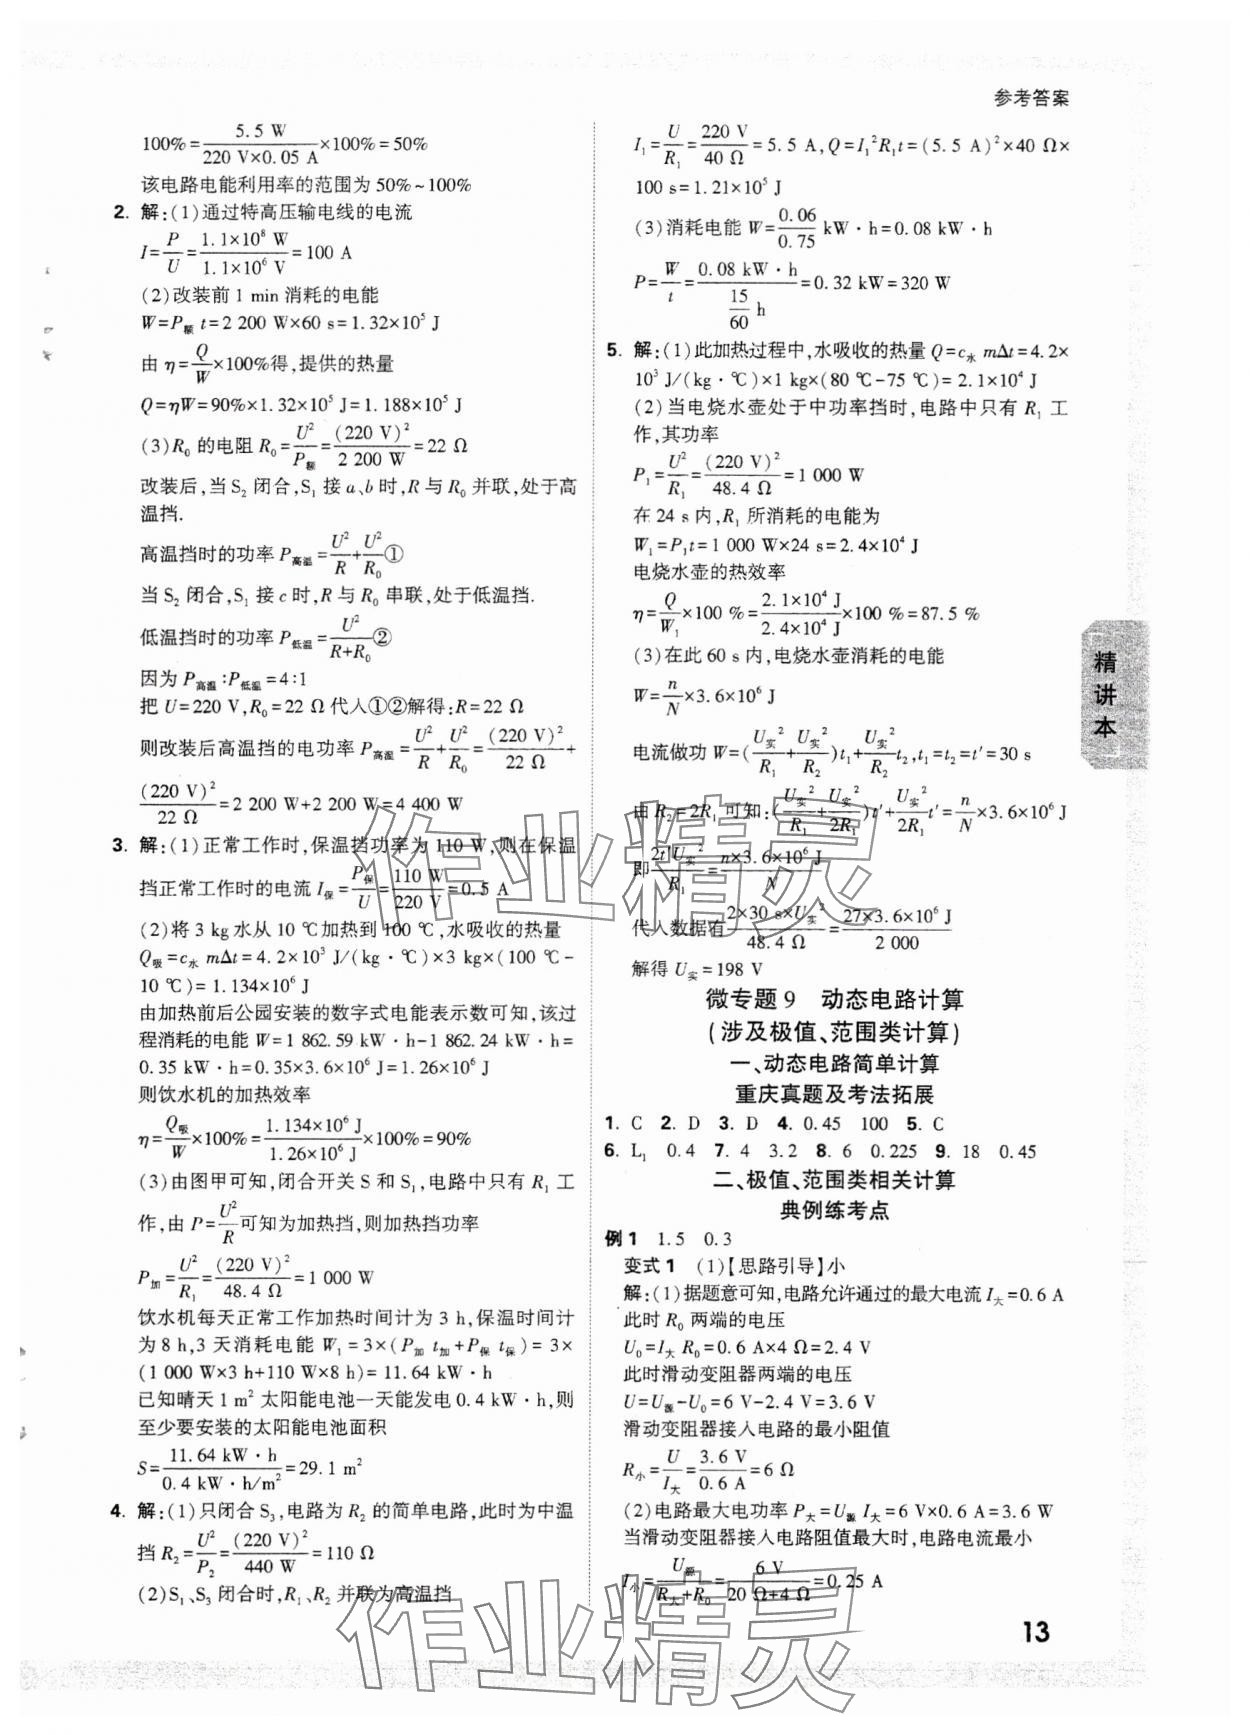 参考答案
100%=5.5 W/(220 V×0.05 A)×100%=50%
该电路电能利用率的范围为 50%~100%
2. 解:(1)通过特高压输电线的电流
I=P/U=1.1×10⁸ W/1.1×10⁶ V=100 A
(2)改装前 1 min 消耗的电能
W=P额 t=2 200 W×60 s=1.32×10⁵ J
由 η=Q/W×100%得,提供的热量
Q=ηW=90%×1.32×10⁵ J=1.188×10⁵ J
(3)R₀ 的电阻 R₀=U²/P额=(220 V)²/2 200 W=22 Ω
改装后,当 S₂ 闭合,S₁ 接 a、b 时,R 与 R₀ 并联,处于高
温挡.
高温挡时的功率 P高温=U²/R+U²/R₀①
当 S₂ 闭合,S₁ 接 c 时,R 与 R₀ 串联,处于低温挡.
低温挡时的功率 P低温=U²/(R+R₀)②
因为 P高温:P低温=4:1
把 U=220 V,R₀=22 Ω 代人①②解得:R=22 Ω
则改装后高温挡的电功率 P高温=U²/R+U²/R₀=(220 V)²/22 Ω+
(220 V)²/22 Ω=2 200 W+2 200 W=4 400 W
3. 解:(1)正常工作时,保温挡功率为 110 W,则在保温
挡正常工作时的电流 I保=P保/U=110 W/220 V=0.5 A
(2)将 3 kg水从 10 ℃加热到100 ℃,水吸收的热量
Q吸=c水 mΔt=4.2×10³ J/(kg·℃)×3 kg×(100 ℃-
10 ℃)=1.134×10⁶ J
由加热前后公园安装的数字式电能表示数可知,该过
程消耗的电能 W=1 862.59 kW·h-1 862.24 kW·h=
0.35 kW·h=0.35×3.6×10⁶ J=1.26×10⁶ J
则饮水机的加热效率
η=Q吸/W×100%=1.134×10⁶ J/1.26×10⁶ J×100%=90%
(3)由图甲可知,闭合开关 S 和 S₁,电路中只有 R₁ 工
作,由 P=U²/R可知为加热挡,则加热挡功率
P加=U²/R₁=(220 V)²/48.4 Ω=1 000 W
饮水机每天正常工作加热时间计为 3 h,保温时间计
为 8 h,3 天消耗电能 W₁=3×(P加 t加+P保 t保)=3×
(1 000 W×3 h+110 W×8 h)=11.64 kW·h
已知晴天 1 m² 太阳能电池一天能发电 0.4 kW·h,则
至少要安装的太阳能电池面积
S=11.64 kW·h/0.4 kW·h/m²=29.1 m²
4. 解:(1)只闭合 S₃,电路为 R₂ 的简单电路,此时为中温
挡 R₂=U²/P₂=(220 V)²/440 W=110 Ω
(2)S₁、S₃ 闭合时,R₁、R₂ 并联为高温挡
I₁=U/R₁=220 V/40 Ω=5.5 A,Q=I₁²R₁t=(5.5 A)²×40 Ω×
100 s=1.21×10⁵ J
(3)消耗电能 W=0.06/0.75 kW·h=0.08 kW·h
P=W/t=0.08 kW·h/(15/60 h)=0.32 kW=320 W
5. 解:(1)此加热过程中,水吸收的热量 Q=c水 mΔt=4.2×
10³ J/(kg·℃)×1 kg×(80 ℃-75 ℃)=2.1×10⁴ J
(2)当电烧水壶处于中功率挡时,电路中只有 R₁ 工
作,其功率
P₁=U²/R₁=(220 V)²/48.4 Ω=1 000 W
在 24 s 内,R₁ 所消耗的电能为
W₁=P₁t=1 000 W×24 s=2.4×10⁴ J
电烧水壶的热效率
η=Q/W₁×100 %=2.1×10⁴ J/2.4×10⁴ J×100 %=87.5 %
(3)在此 60 s 内,电烧水壶消耗的电能
W=n/N×3.6×10⁶ J
电流做功 W=(U实²/R₁+U实²/R₂)t₁+U实²/R₂t₂,t₁=t₂=t′=30 s
由 R₂=2R₁ 可知:(U实²/R₁+U实²/2R₁)t′+U实²/2R₁t′=n/N×3.6×10⁶ J
即2t′U实²/R₁=n×3.6×10⁶ J/N
代人数据有2×30 s×U实²/48.4 Ω=27×3.6×10⁶ J/2 000
解得 U实=198 V
微专题 9 动态电路计算
(涉及极值、范围类计算)
一、动态电路简单计算
重庆真题及考法拓展
1. C 2. D 3. D 4. 0.45 100 5. C
6. L₁ 0.4 7. 4 3.2 8. 6 0.225 9. 18 0.45
二、极值、范围类相关计算
典例练考点
例 1 1.5 0.3
变式 1 (1)【思路引导】小
解:(1)据题意可知,电路允许通过的最大电流 I大=0.6 A
此时 R₀ 两端的电压
U₀=I大 R₀=0.6 A×4 Ω=2.4 V
此时滑动变阻器两端的电压
U=U源-U₀=6 V-2.4 V=3.6 V
滑动变阻器接入电路的最小阻值
R小=U/I大=3.6 V/0.6 A=6 Ω
(2)电路最大电功率 P大=U源 I大=6 V×0.6 A=3.6 W
当滑动变阻器接入电路阻值最大时,电路电流最小
I小=U源/(R大+R₀)=6 V/(20 Ω+4 Ω)=0.25 A
精讲本
13
作业精灵
作业精灵